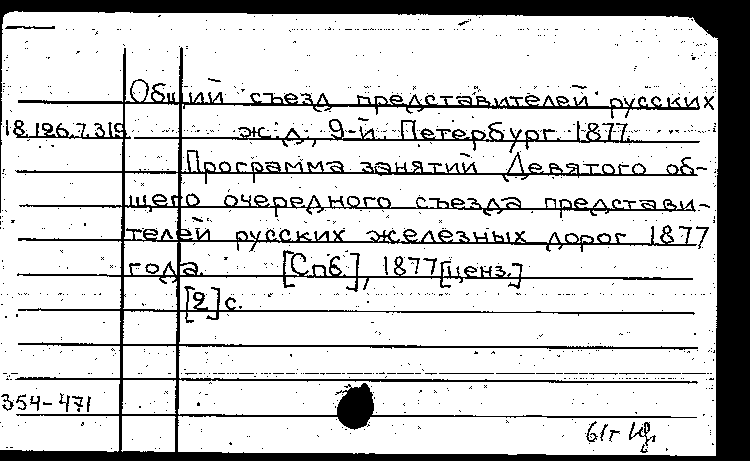 Общий съезд представителей русских
18.126.7.319 ж.д., 9-й. Петербург. 1877.
Программа занятий Девятого об-
щего очередного съезда представи-
телей русских железных дорог 1877
года. [Спб.], 1877 [ценз.]
[2] с.
354-471
61г